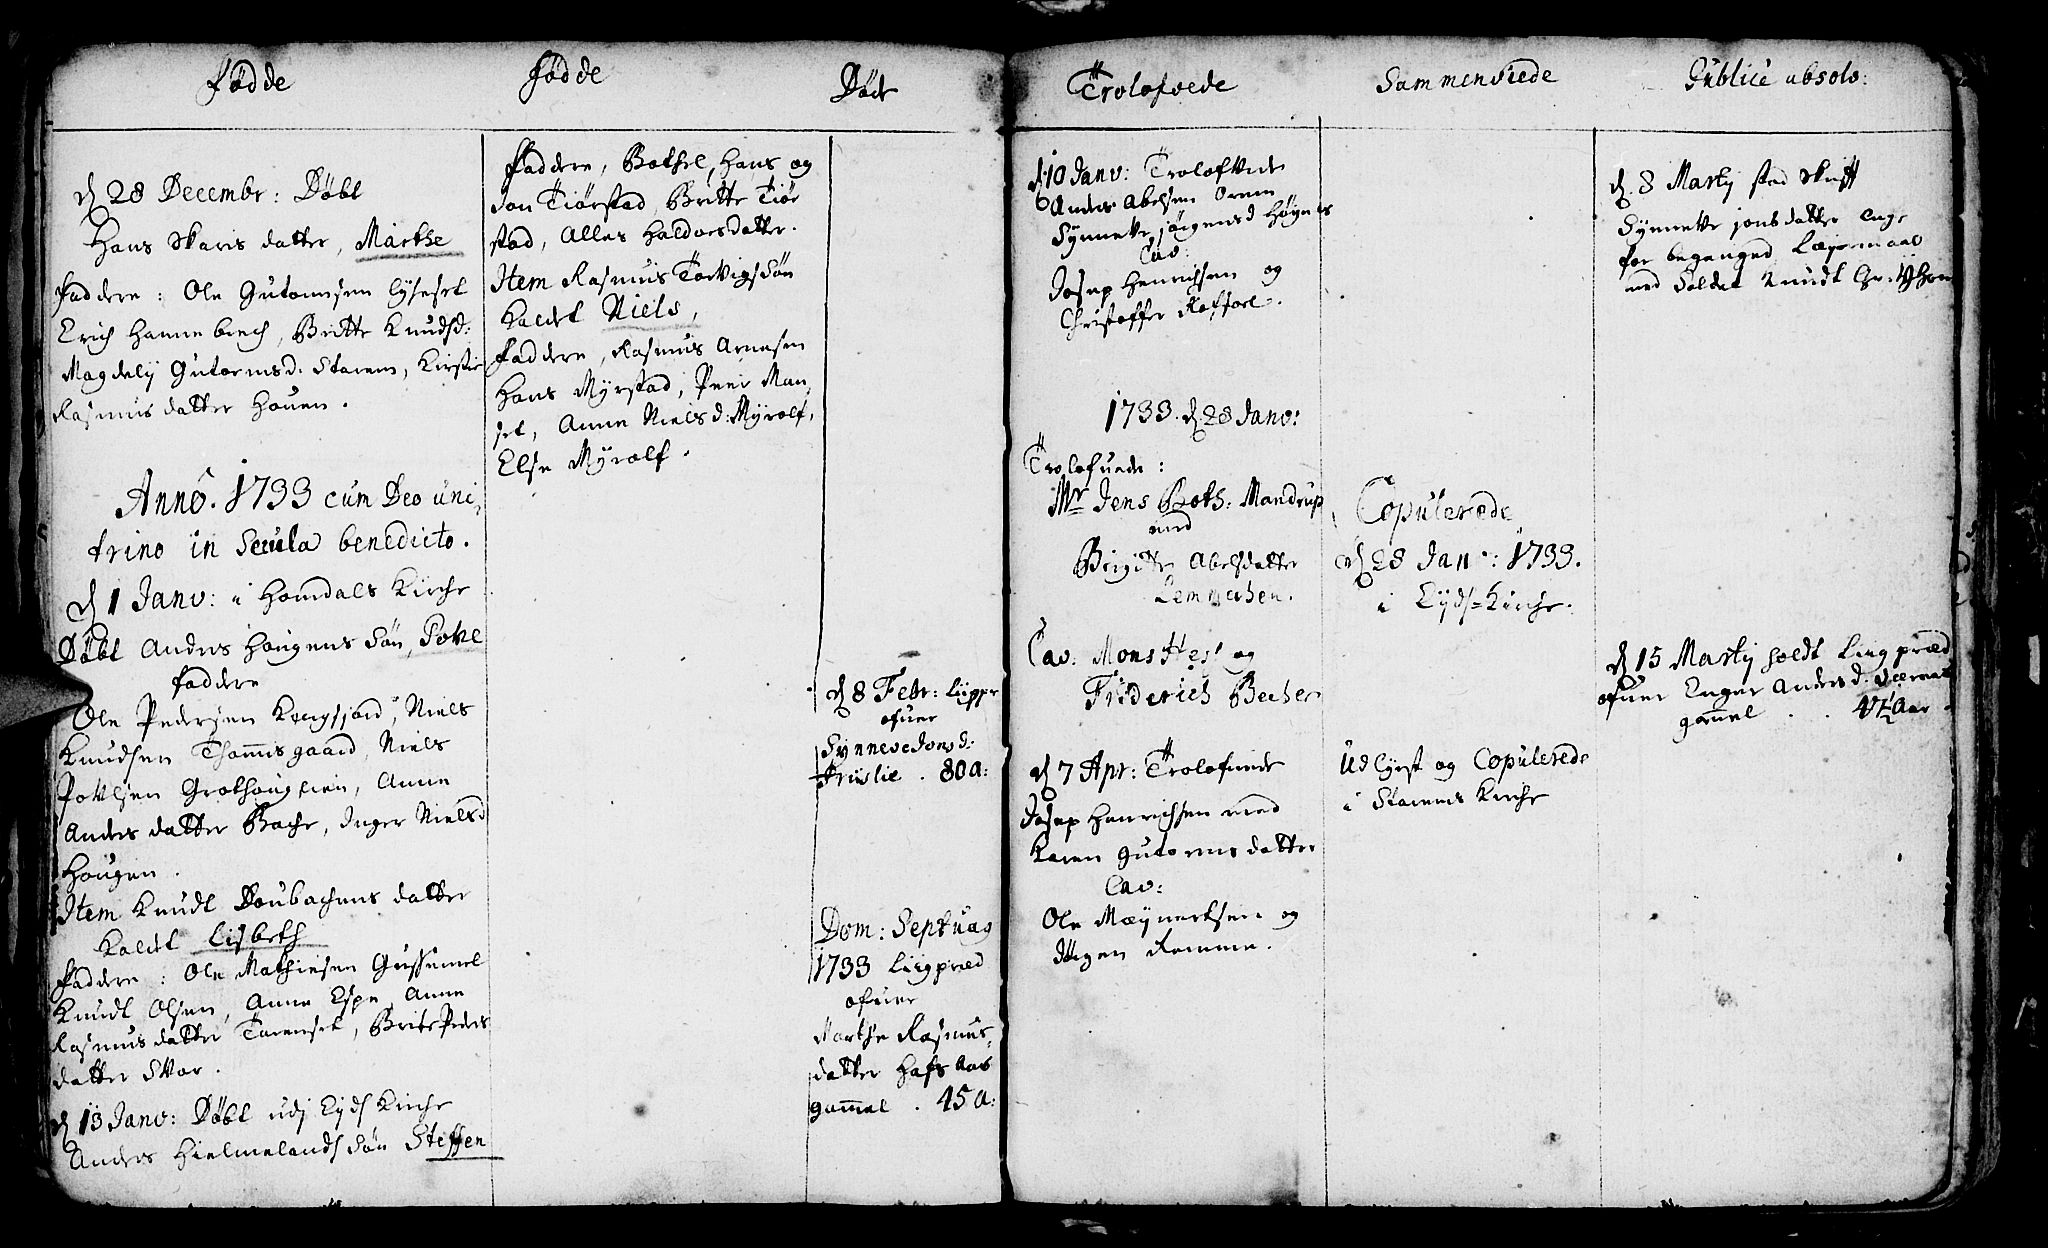 Fødde
d 28 Decembr: Døbt
Hans Skaris datter, Marthe
Faddere: Ole Gutormsen
Erich Hannebrech, Britte Knudsd:
Magdely Gutormsd. Starem, Kirstie
Rasmusdatter Houen.
Anno. 1733 cum Deo uni
trino in Secula benedicto.
d 1 Janv: i Homdals Kirche
Døbt Anders Hougens Søn, Povel
faddere
Ole Pedersen Niels
Knudsen Niels
Povelsen Anne
Andersdatter Bache, Inger Nielsd
Hougen.
Item Knudt Doubachens datter
kaldet Lisbeth
faddere: Ole Mathiesen Gussemel
Knudt Olsen, Anne Espe, Anne
Rasmusdatter Torenset, Brite Peders
datter Skor.
d 13 Janv: Døbt udj Eyds Kirche
Anders Hielmelands Søn Steffen
Fødde
Faddere, Bothel, Hans og
Jon Tiørstad, Britte Tiør
stad, Alles Haldorsdatter.
Item Rasmus Torvigs Søn
kaldet Niels,
faddere, Rasmus Arnesen
Hans Myrstad, Peer Man
set, Anne Nielsd: Myrolf,
Else Myrolf.
Døde
d 8 Febr: Liigpr
ofuer
Synneve Jonsd:
80 a:
Dom: Septuag
1733 Liigpræd
ofuer
Marthe Rasmus
datter Hafsaas
gam̅el . 45 a:
Trolofvede
d 10 Janv: Trolofvede
Anders Abelsen
Synneve Jørgensd Høgnes
Cav:
Josep Henrichsen og
Christoffer
1733. d. 28 Janv:
Trolofuede:
Mr Jens Both: Mandrup
med
Birgitte Abelsdatter
Lemmechen.
Cav: Mons Hest og
Friderich Becher
d 7 Apr: Trolofuede
Josep Henrichsen med
Karen Gutormsdatter
Cav:
Ole Meynertsen og
Remme.
Sammenviede
Copulerede
d 28 Jan: 1733.
i Eyds-Kirche.
Udlyst og Copulerede
i Starems Kirche
Publice absolv:
d. 8 Martij stod Skrift
Synneve Jonsdatter
for beganged Leyermaal
med Soldat Knudt
d 15 Martij holdt Liigpræd
ofuer Inger Andersd.
gam̅el . . 47½ Aar.